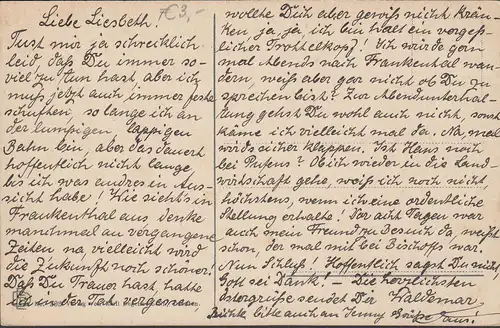 Liebe Liesbeth!
€3,-
Tust mir ja schrecklich
leid, daß Du immer so-
viel zu tun hast, aber ich
muß jetzt auch immer feste
schuften, so lange ich an
der lumpigen, lappigen
Bahn bin, aber das dauert
hoffentlich nicht lange,
bis ich was andres in Aus-
sicht habe! Wie sieht's in
Frankenthal aus, denke
manchmal an vergangene
Zeiten na vielleicht wird
die Zukunft noch schöner.
Daß Du Trauer hast, hatte
ich in der Tat vergessen
wollte Dich aber gewiß nicht krän-
ken, ja, ja, ich bin halt ein vergeß-
licher Trottelkopf! Ich würde gern
mal Abends nach Frankenthal wan-
dern, weiß aber gar nicht ob Du zu
sprechen bist? Zur Abendunterhal-
tung gehst Du wohl auch nicht, sonst
käme ich vielleicht mal da. Na, mal
wirds sicher klappen. Ist Hans noch
bei ? Ob ich wieder in die Land-
wirtschaft gehe, weiß ich noch nicht,
höchstens, wenn ich eine ordentliche
Stellung erhalte! Vor acht Tagen war
auch mein Freund zu Besuch da, weißt
schon, der mal mit bei Bischoffs war.
Nun Schluß! Hoffentlich sagst Du nicht
Gott sei Dank! – Die herzlichsten
Ostergrüße sendet Dir Waldemar.
Richte bitte auch an Jenny Grüße aus!